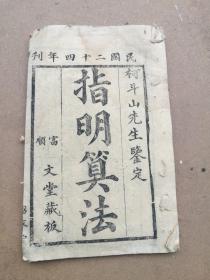 民國二十四年刊
柯斗山先生鑒定
指明算法
富順
文堂藏板